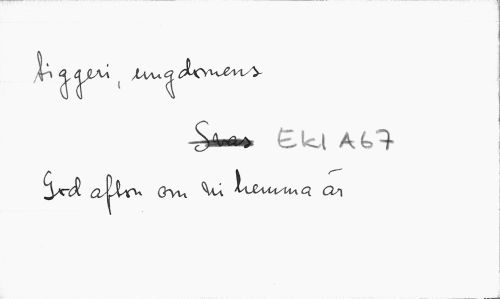 tiggeri, ungdomens
Svas EKl A67
God afton om ni hemma är